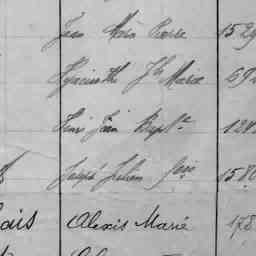 Jean Marie Pierre 152
Hyacinthe Jh Marie 69
Jean Bapte 124
Joseph Julien 1580
ais Alexis Marie 178